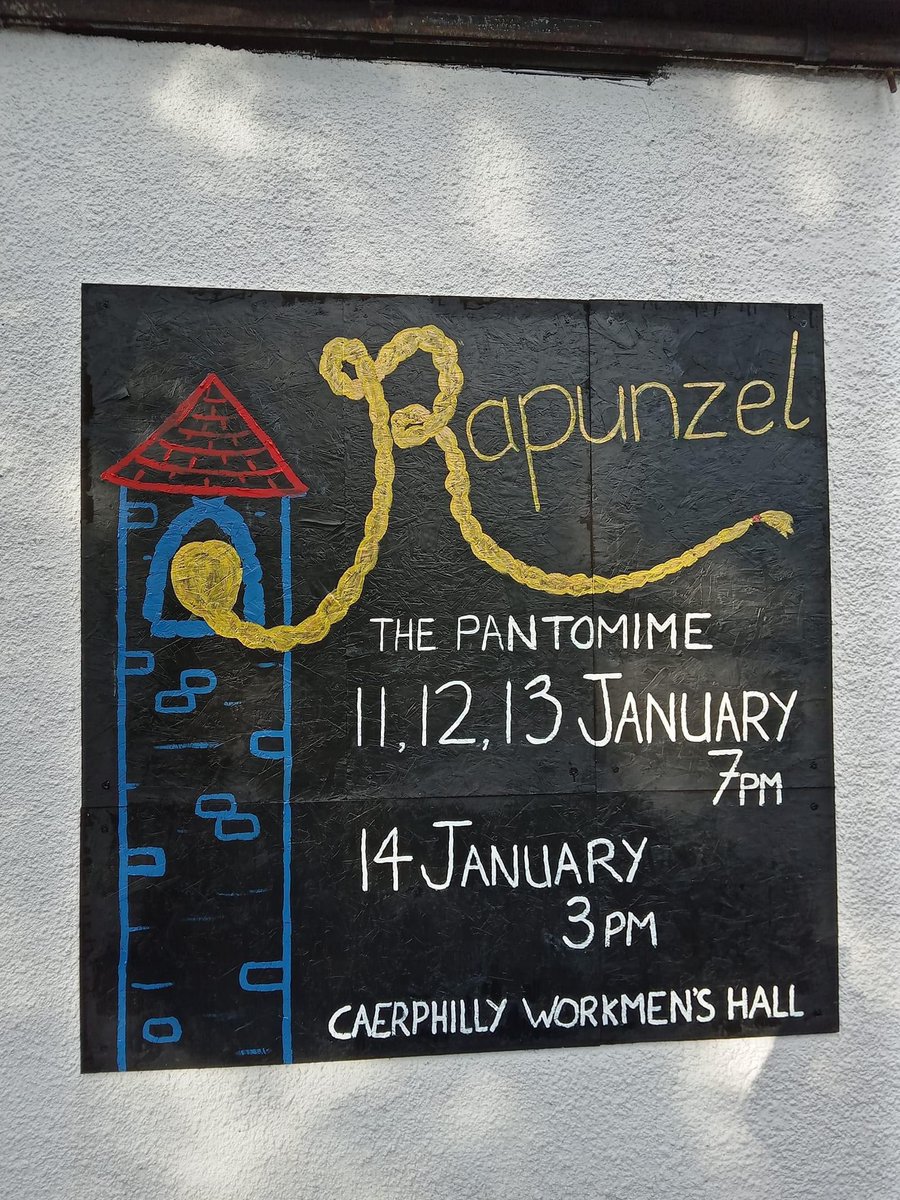 Rapunzel
THE PANTOMIME
11, 12, 13 JANUARY
7PM
14 JANUARY
3PM
CAERPHILLY WORKMEN'S HALL